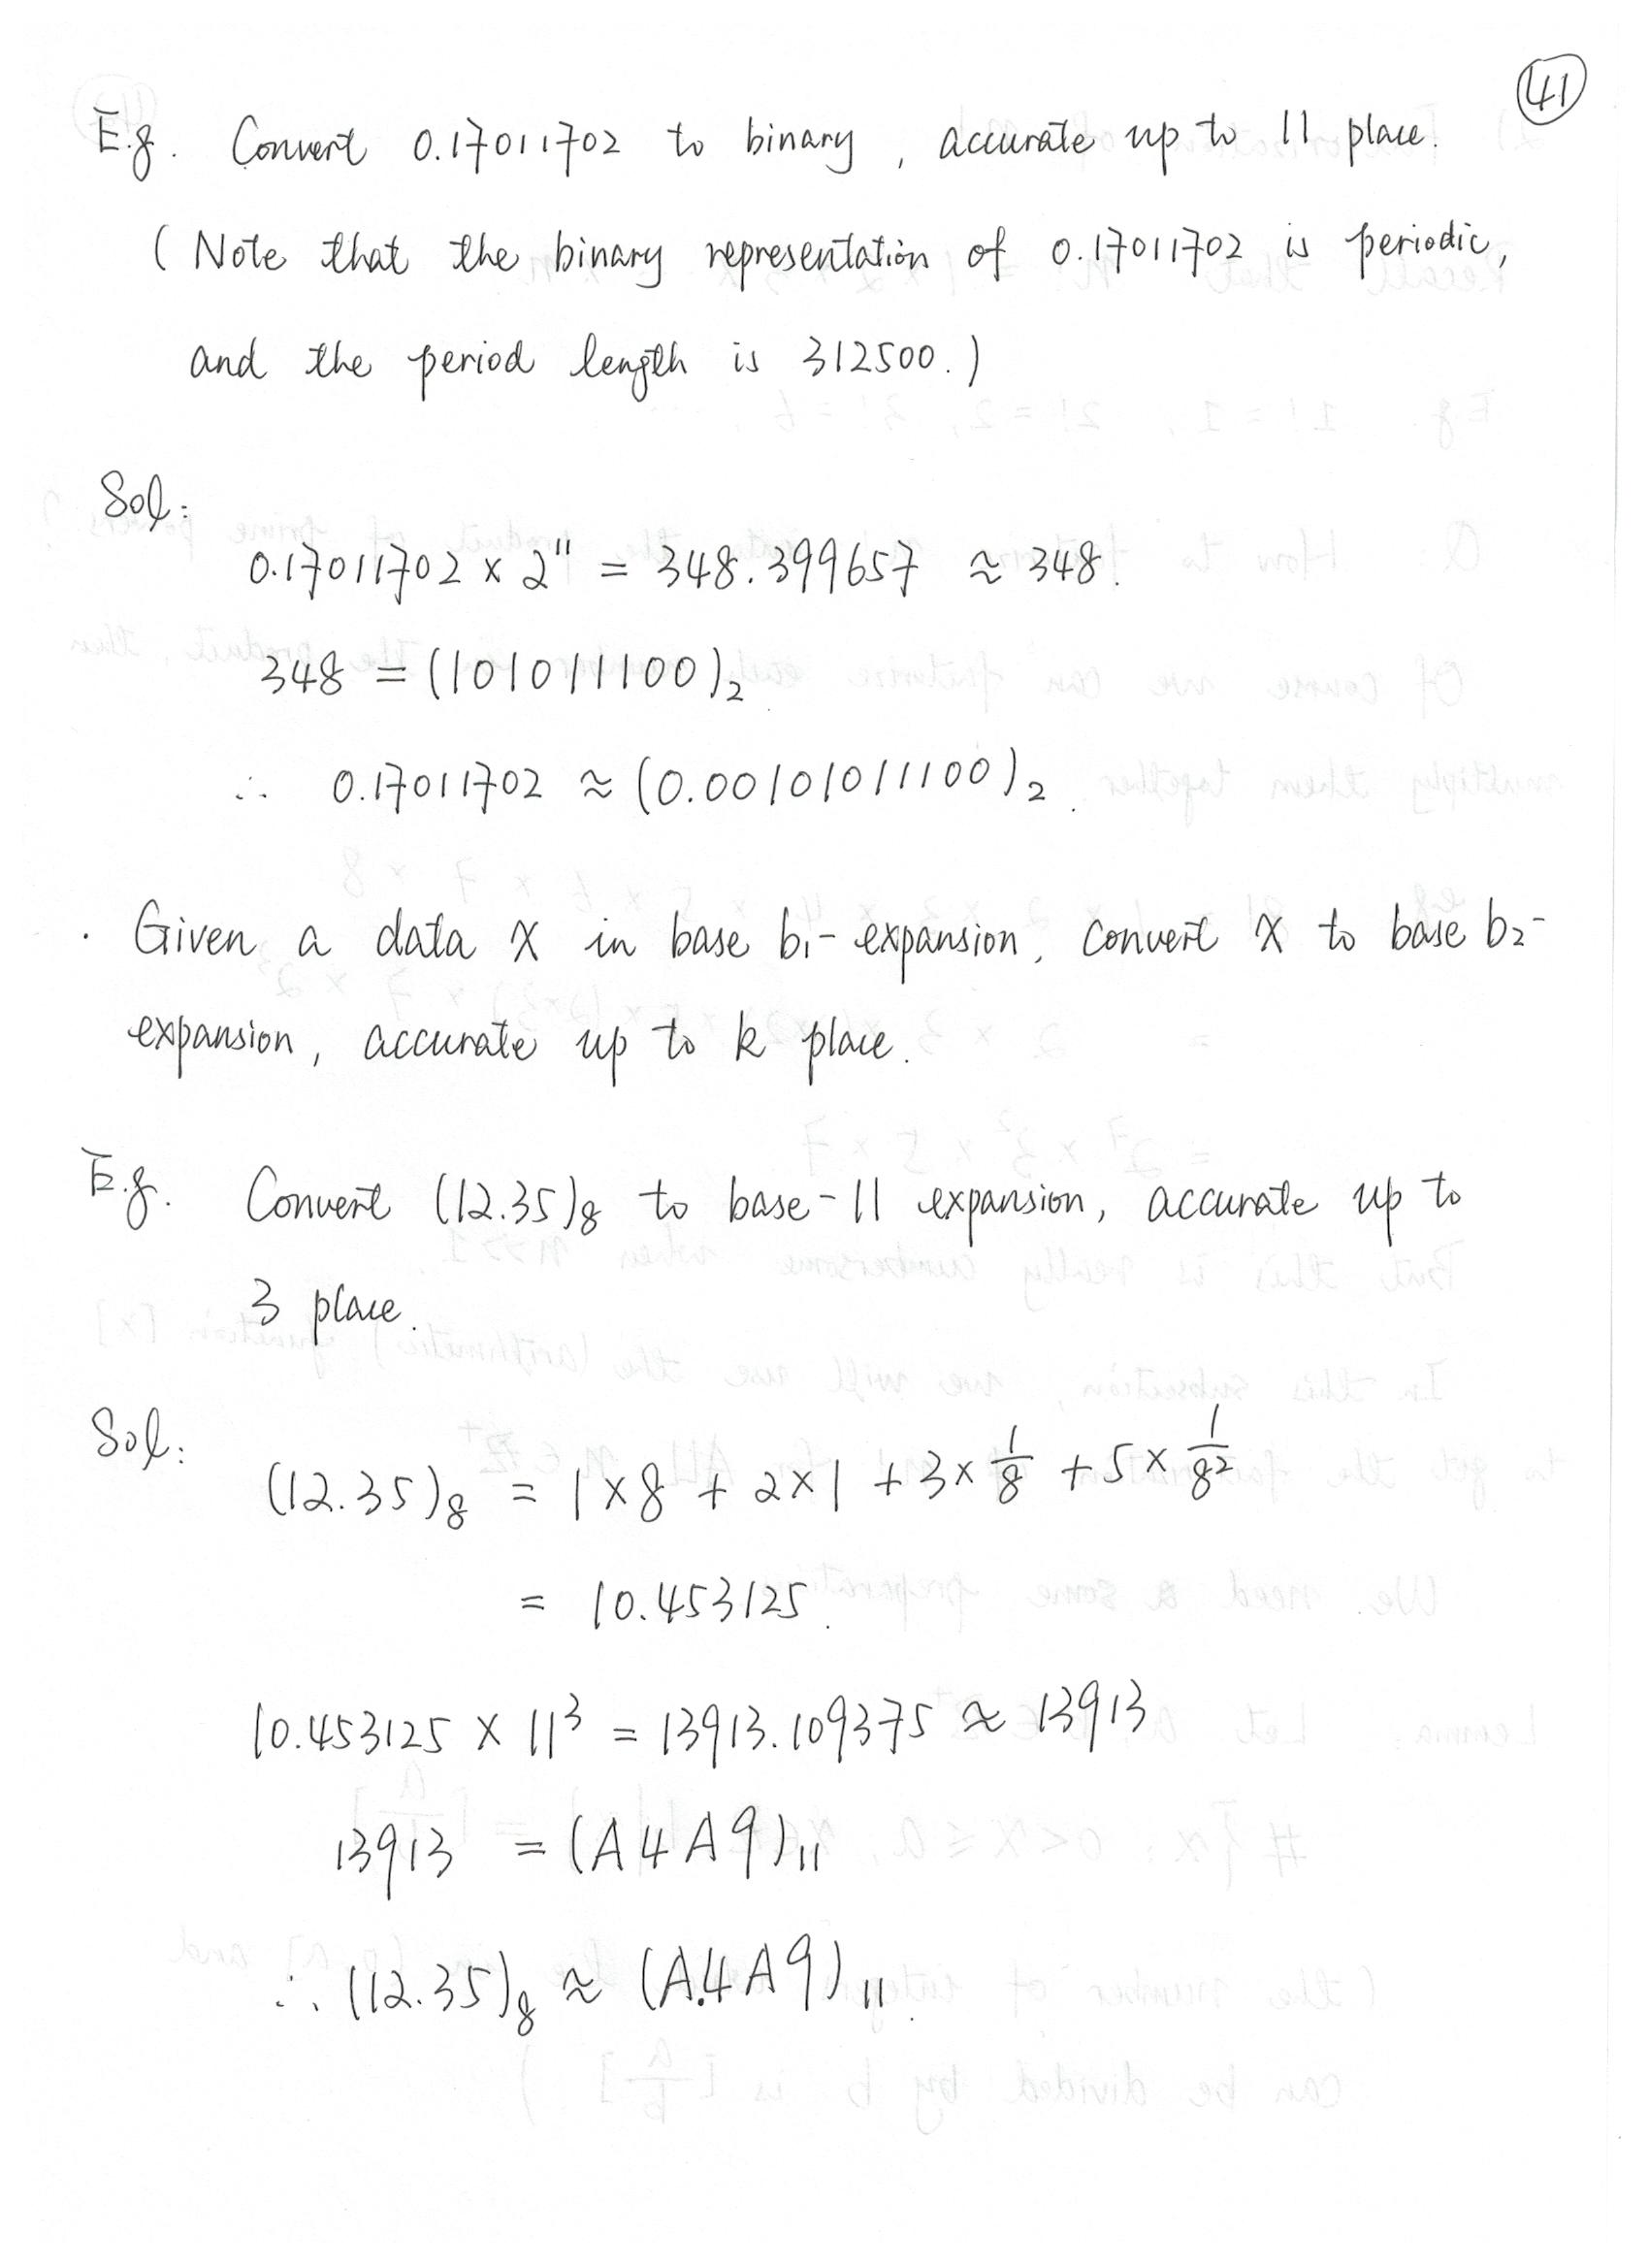 41
E.g. Convert 0.17011702 to binary, accurate up to 11 place.
(Note that the binary representation of 0.17011702 is periodic,
and the period length is 312500.)
Sol:
0.17011702 × 2¹¹ = 348.399657 ≈ 348.
348 = (101011100)₂
∴ 0.17011702 ≈ (0.00101011100)₂.
· Given a data x in base b₁-expansion, convert x to base b₂-
expansion, accurate up to k place.
E.g. Convert (12.35)₈ to base-11 expansion, accurate up to
3 place.
Sol:
(12.35)₈ = 1×8 + 2×1 + 3×1/8 + 5×1/8²
= 10.453125.
10.453125 × 11³ = 13913.109375 ≈ 13913
13913 = (A4A9)₁₁
∴ (12.35)₈ ≈ (A.4A9)₁₁.